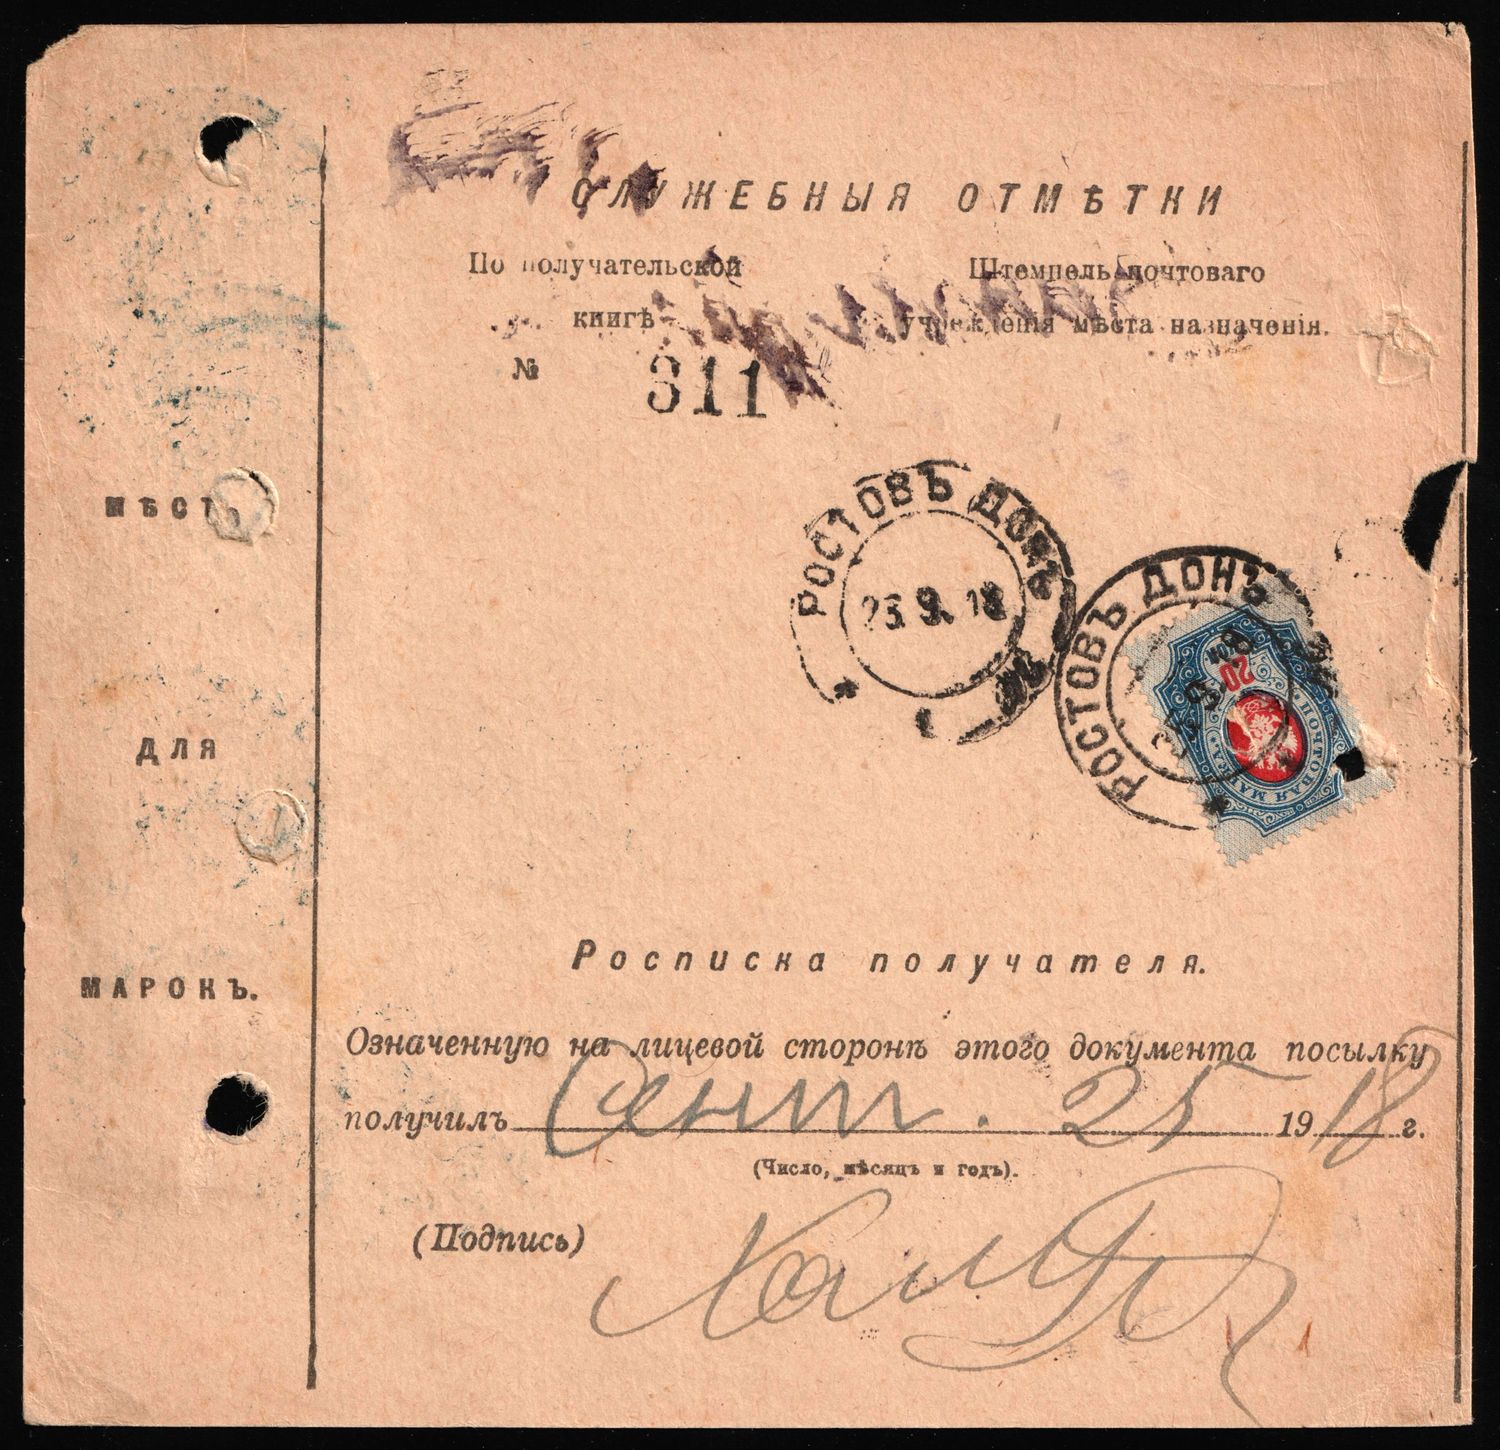 СЛУЖЕБНЫЯ ОТМѢТКИ
По получательской
книгѣ
№ 311
Штемпель почтоваго
учрежденія мѣста назначенія.
МѢСТО
ДЛЯ
МАРОКЪ.
РОСТОВЪ ДОНЪ
25.9.18
РОСТОВЪ ДОНЪ
20 КОП
ПОЧТОВАЯ МАРКА
Росписка получателя.
Означенную на лицевой сторонѣ этого документа посылку
получилъ Сент. 25 1918 г.
(Число, мѣсяцъ и годъ).
(Подпись)